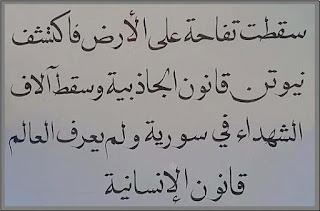 سقطت تفاحة على الأرض فاكتشف
نيوتن قانون الجاذبية وسقط آلاف
الشهداء في سورية ولم يعرف العالم
قانون الإنسانية